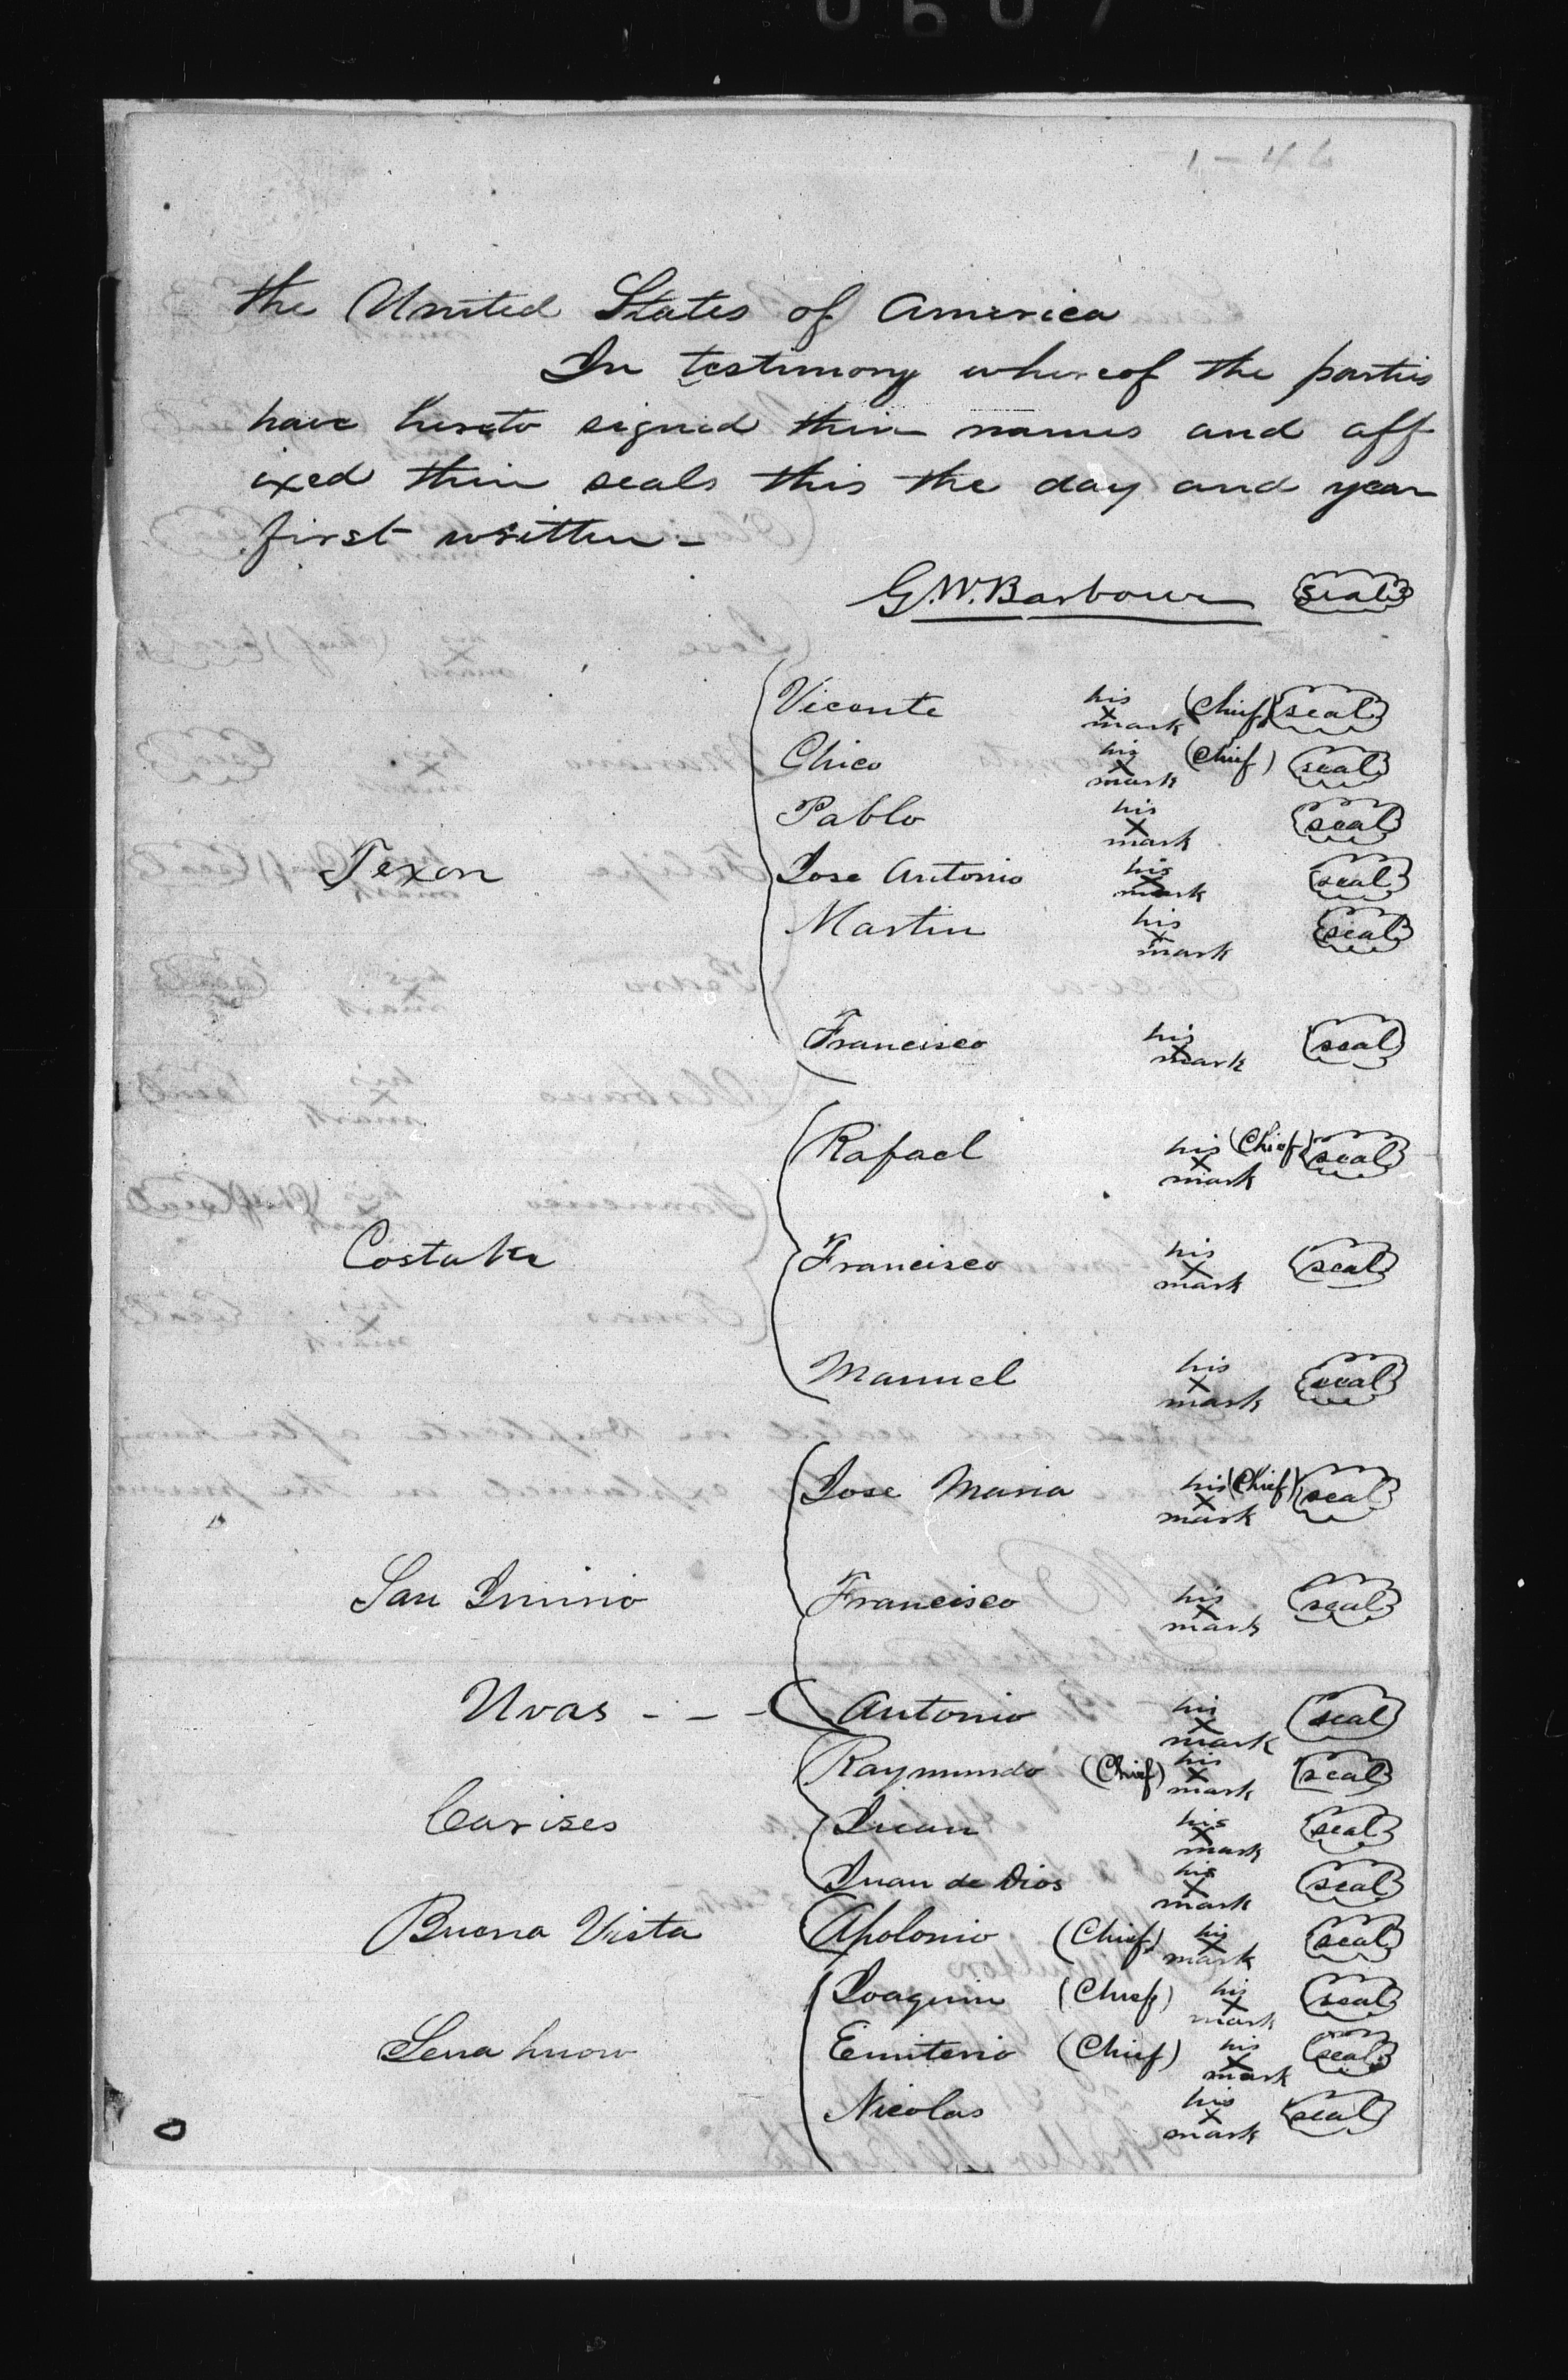 the United States of America
In testimony whereof the parties
have hereto signed their names and aff
ixed their seals this the day and year
first written -
G.W. Barbour seal
Vicente his x mark (Chief) seal
Chico his x mark (Chief) seal
Pablo his x mark seal
Texon Jose Antonio his x mark seal
Martin his x mark seal
Francisco his x mark seal
Rafael his x mark (Chief) seal
Costake Francisco his x mark seal
Manuel his x mark seal
Jose Maria his x mark (Chief) seal
San Imirio Francisco his x mark seal
Uvas - - - Antonio his x mark seal
Raymundo (Chief) his x mark seal
Carises Juan his x mark seal
Juan de Dios his x mark seal
Buena Vista Apolonio (Chief) his x mark seal
Joaquin (Chief) his x mark seal
Sena huow Emiterio (Chief) his x mark seal
Nicolas his x mark seal